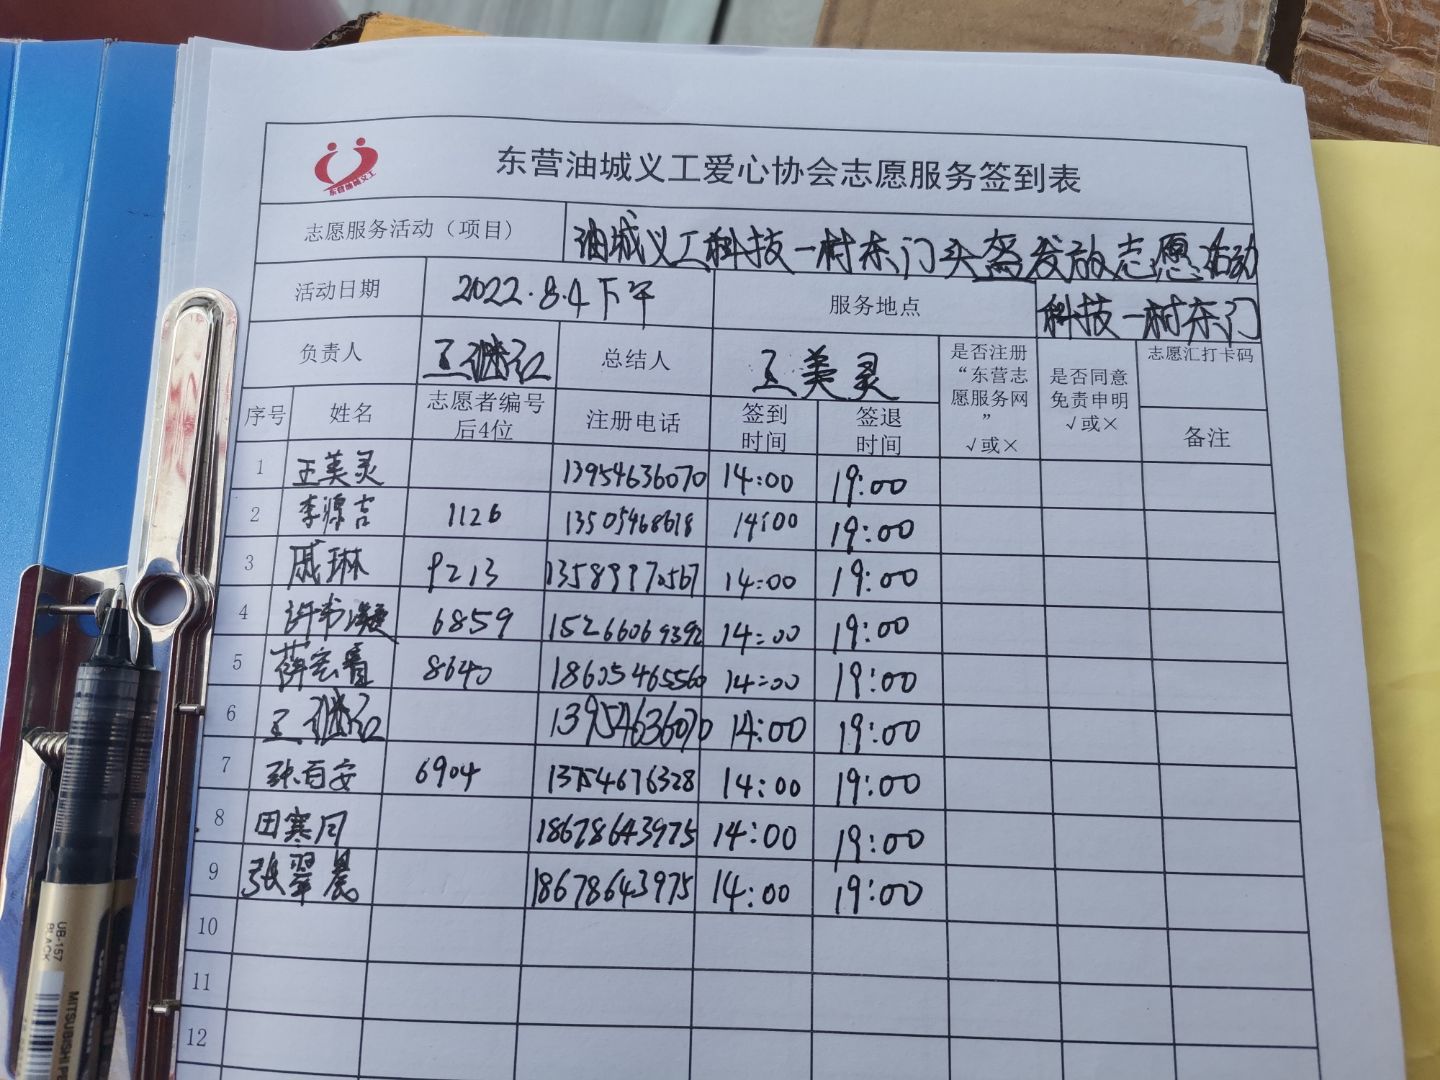 东营油城义工爱心协会志愿服务签到表
东营油城义工
志愿服务活动（项目） 油城义工科技一村东门头盔发放志愿活动
活动日期 2022.8.4下午 服务地点 科技一村东门
负责人 王继红 总结人 王美灵 是否注册“东营志愿服务网” √或× 是否同意免责申明 √或× 志愿汇打卡码
序号 姓名 志愿者编号后4位 注册电话 签到时间 签退时间 备注
1 王美灵 13954636070 14:00 19:00
2 李源吉 1126 13505468618 14:00 19:00
3 戚琳 9213 13589970567 14:00 19:00
4 许书凝 6859 15266069392 14:00 19:00
5 薛宏 8640 18605465560 14:00 19:00
6 王继红 13954636070 14:00 19:00
7 张百安 6904 13754676328 14:00 19:00
8 田寒月 18678643975 14:00 19:00
9 张翠晨 18678643975 14:00 19:00
10
11
12
UB-157
BLACK
MITSUBISHI